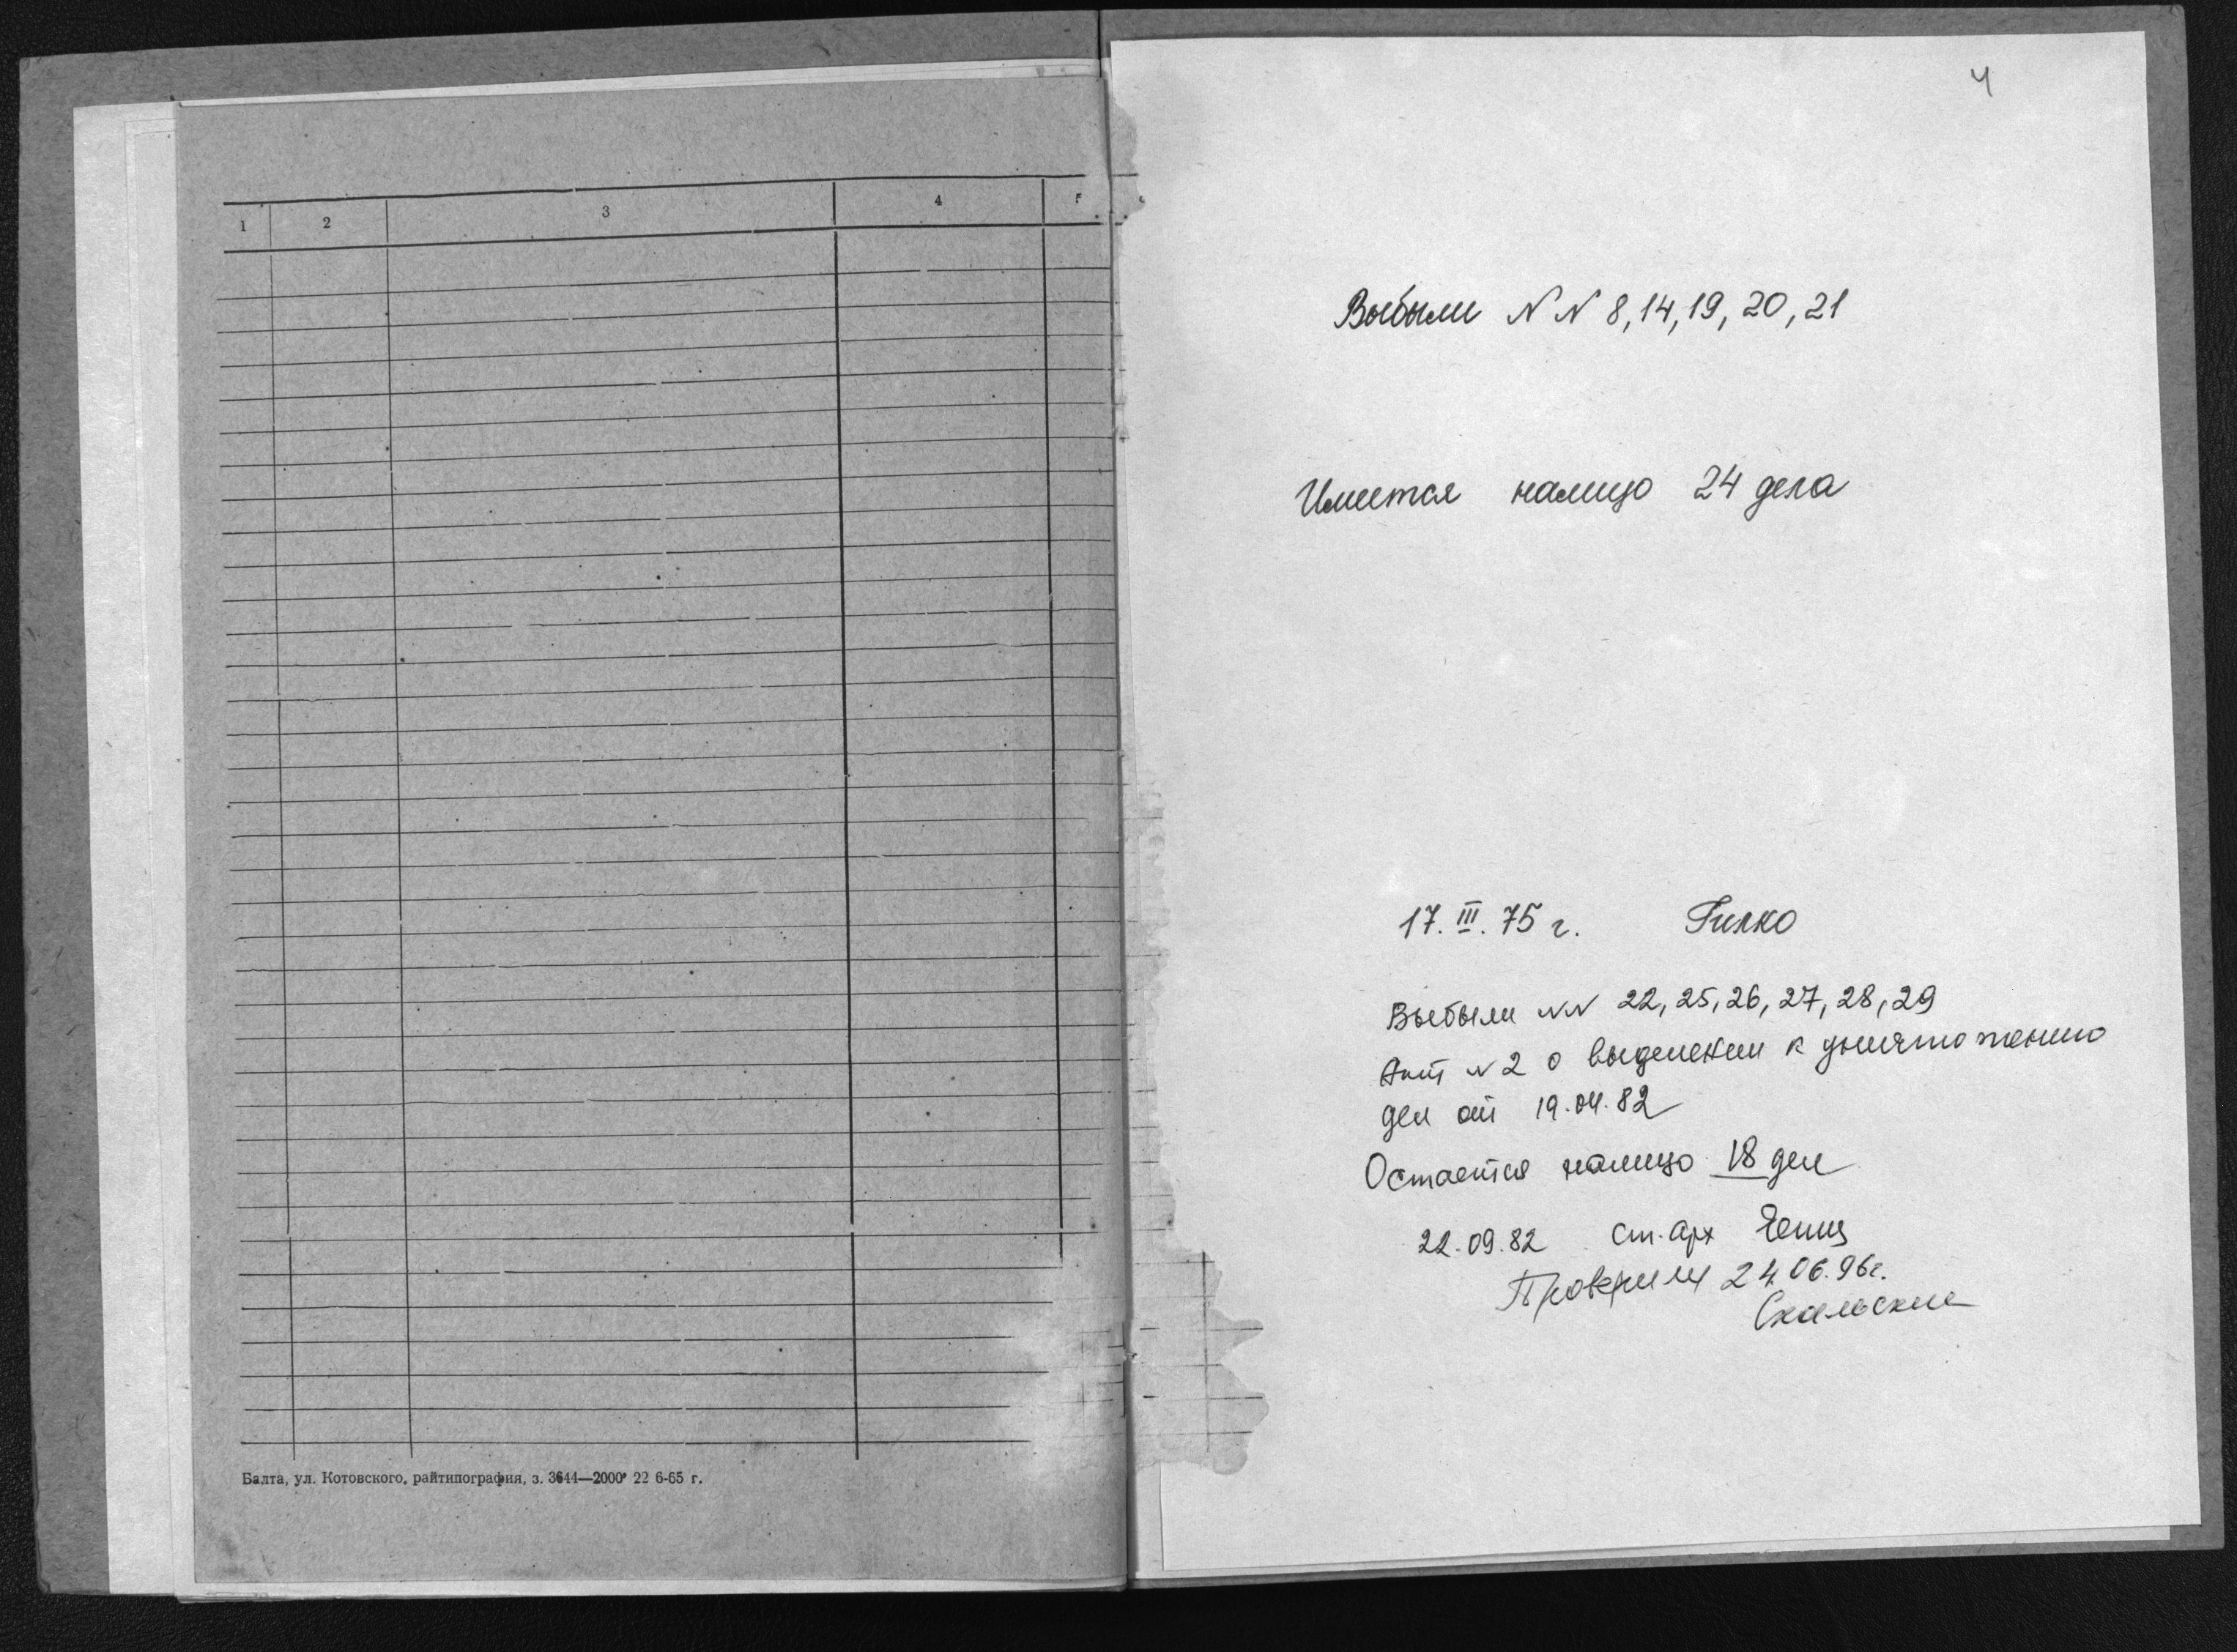 1 2 3 4
Балта, ул. Котовского, райтипография, з. 3644—2000 22 6-65 г.
4
Выбыли NN 8, 14, 19, 20, 21
Имеется налицо 24 дела
17. III. 75 г. Гилко
Выбыли NN 22, 25, 26, 27, 28, 29
Акт N 2 о выделении к уничтожению
дел от 19.04.82
Остается налицо 18 дел
22.09.82 Ст. арх
Проверили 24.06.96г.